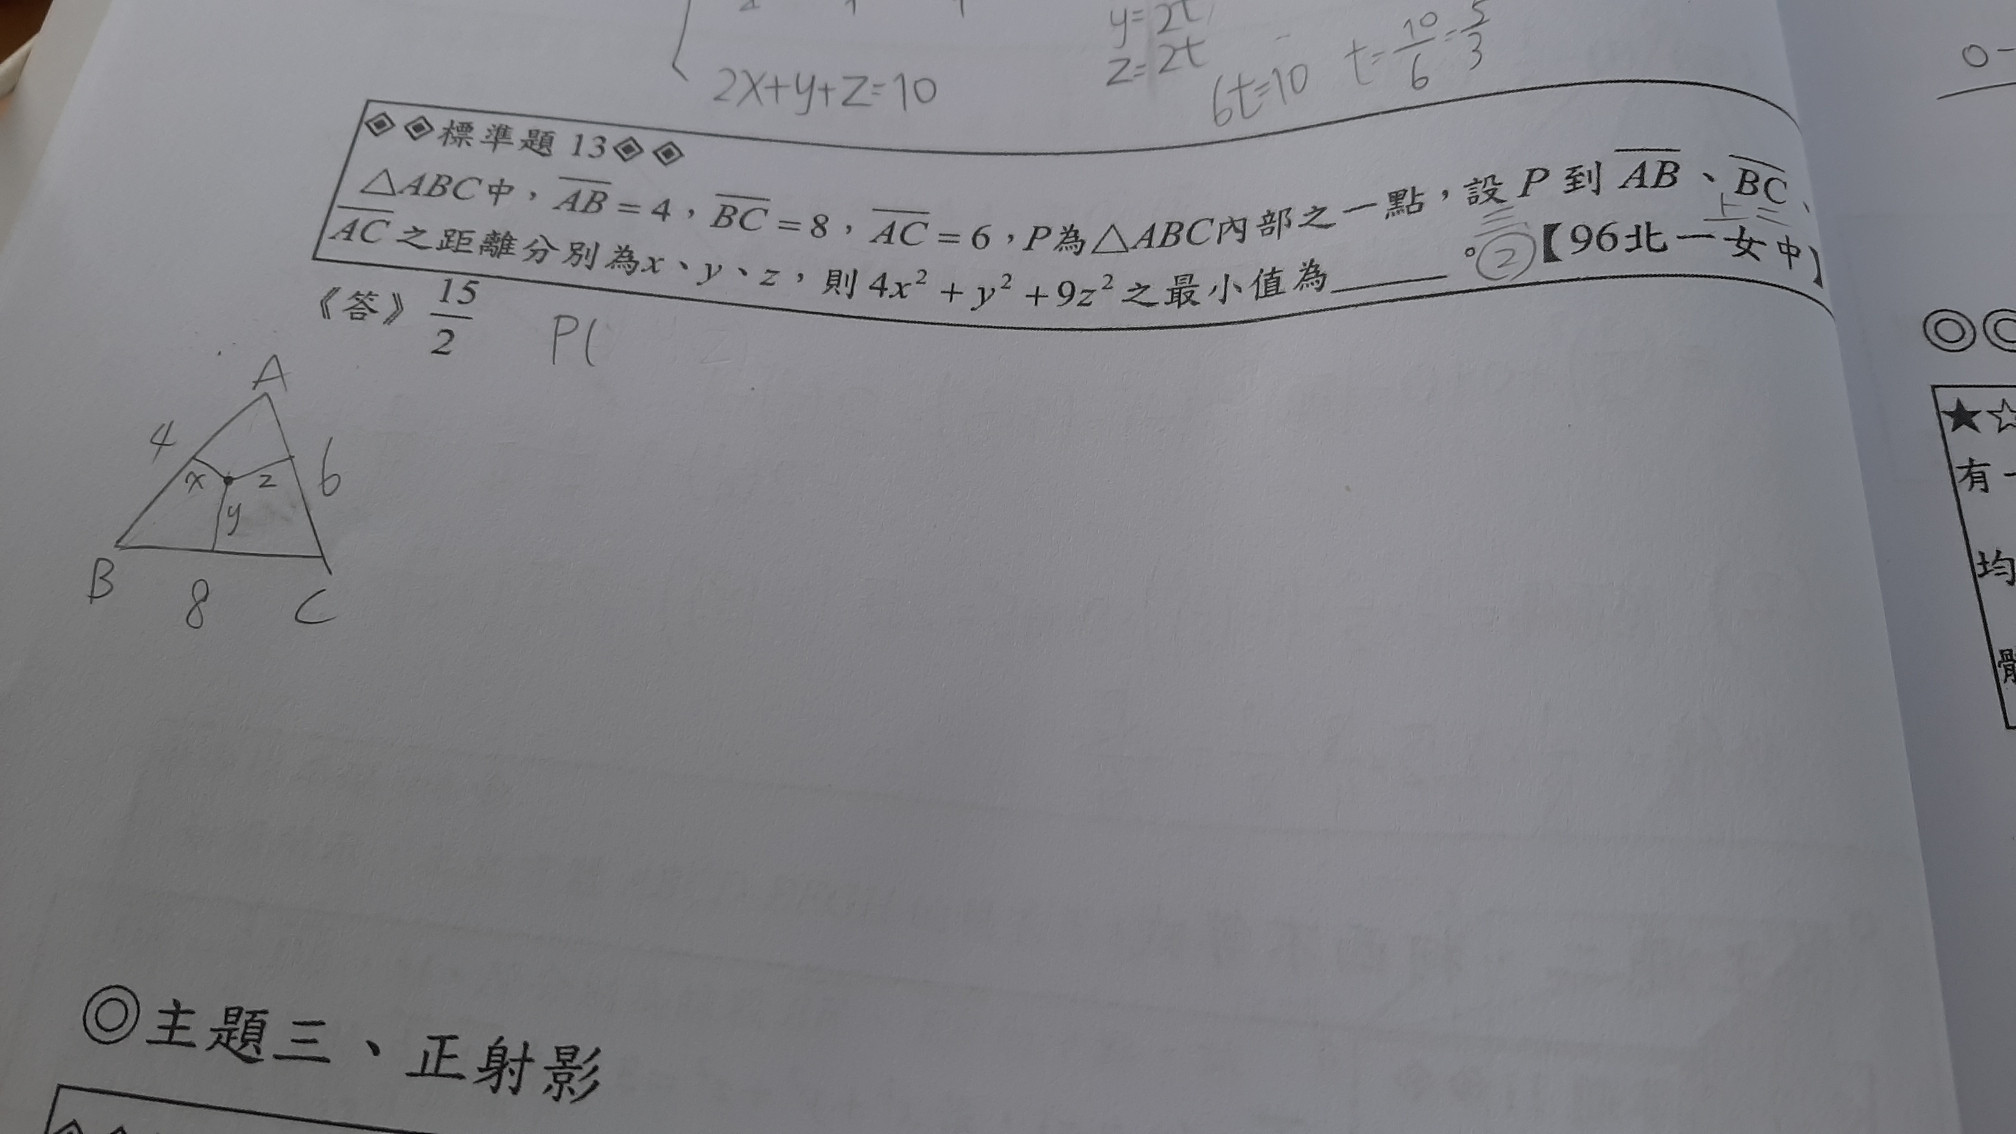 y=2t
z=2t
2x+y+z=10
6t=10 t=10/6=5/3
◈◈標準題 13◈◈
△ABC中，AB=4，BC=8，AC=6，P為△ABC內部之一點，設P到AB、BC、
AC之距離分別為x、y、z，則4x²+y²+9z²之最小值為______。②【96北一女中】
《答》15/2
P(
A
4
6
x
z
y
B
8
C
◎主題三、正射影
◎◎
★☆
有一
均